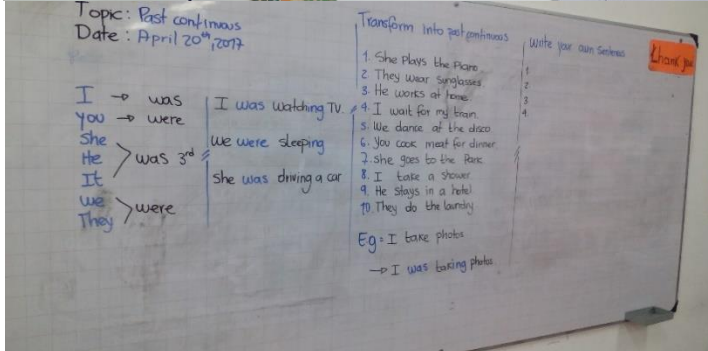 Topic: Past continuous
Date: April 20th, 2017
I → was
you → were
She
He
It
was 3rd
we
They
were
I was watching TV.
we were sleeping
She was driving a car
Transform into past continuous
1. She Plays the Piano
2. They wear sunglasses
3. He works at home
4. I wait for my train.
5. We dance at the disco
6. You cook meat for dinner
7. She goes to the Park
8. I take a shower
9. He stays in a hotel
10. They do the laundry
Eg= I take photos
→ I was taking photos
Write your own sentences
1
2
3
4
Thank you